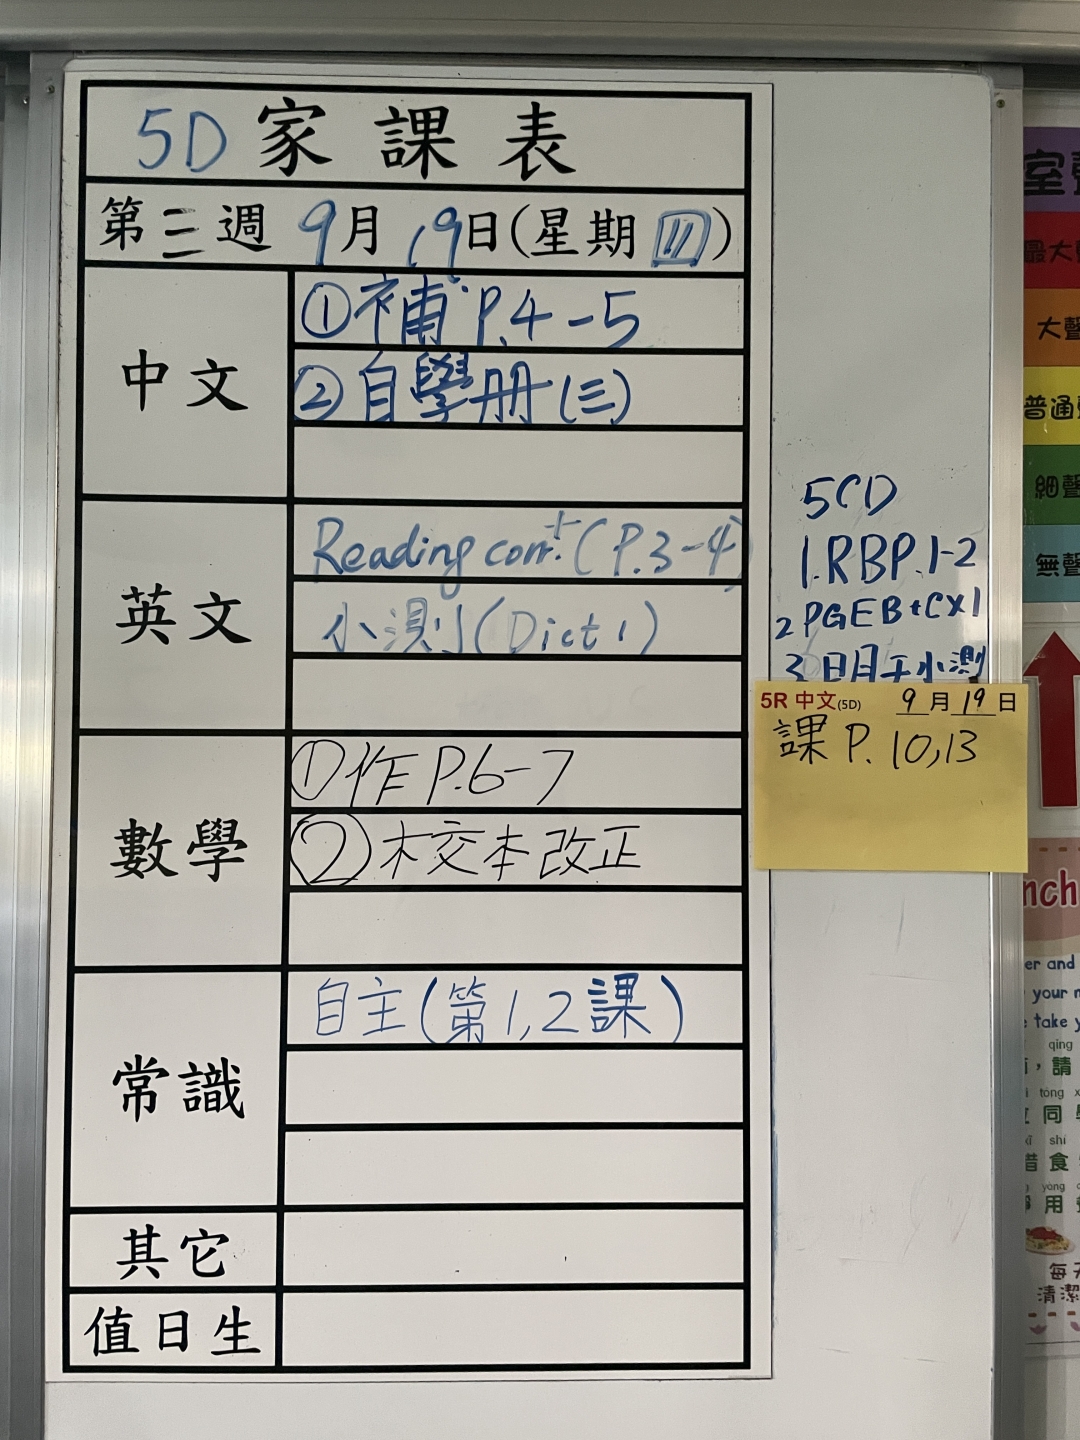 5D 家課表
第三週 9月19日(星期四)
中文
①補 P.4-5
②自學册(三)
英文
Reading corr.+(P.3-4)
小測(Dict 1)
數學
①作 P.6-7
②木交本改正
常識
自主(第1,2課)
其它
值日生
5CD
1.RBP.1-2
2 PGEB+CX1
3 日月天小測
5R 中文(5D) 9月19日
課 P. 10,13
室
最大
大聲
普通
細聲
無聲
nch
er and
your
take y
qíng
，請
tóng
同
shí
惜食
yòng
用
每天
清潔